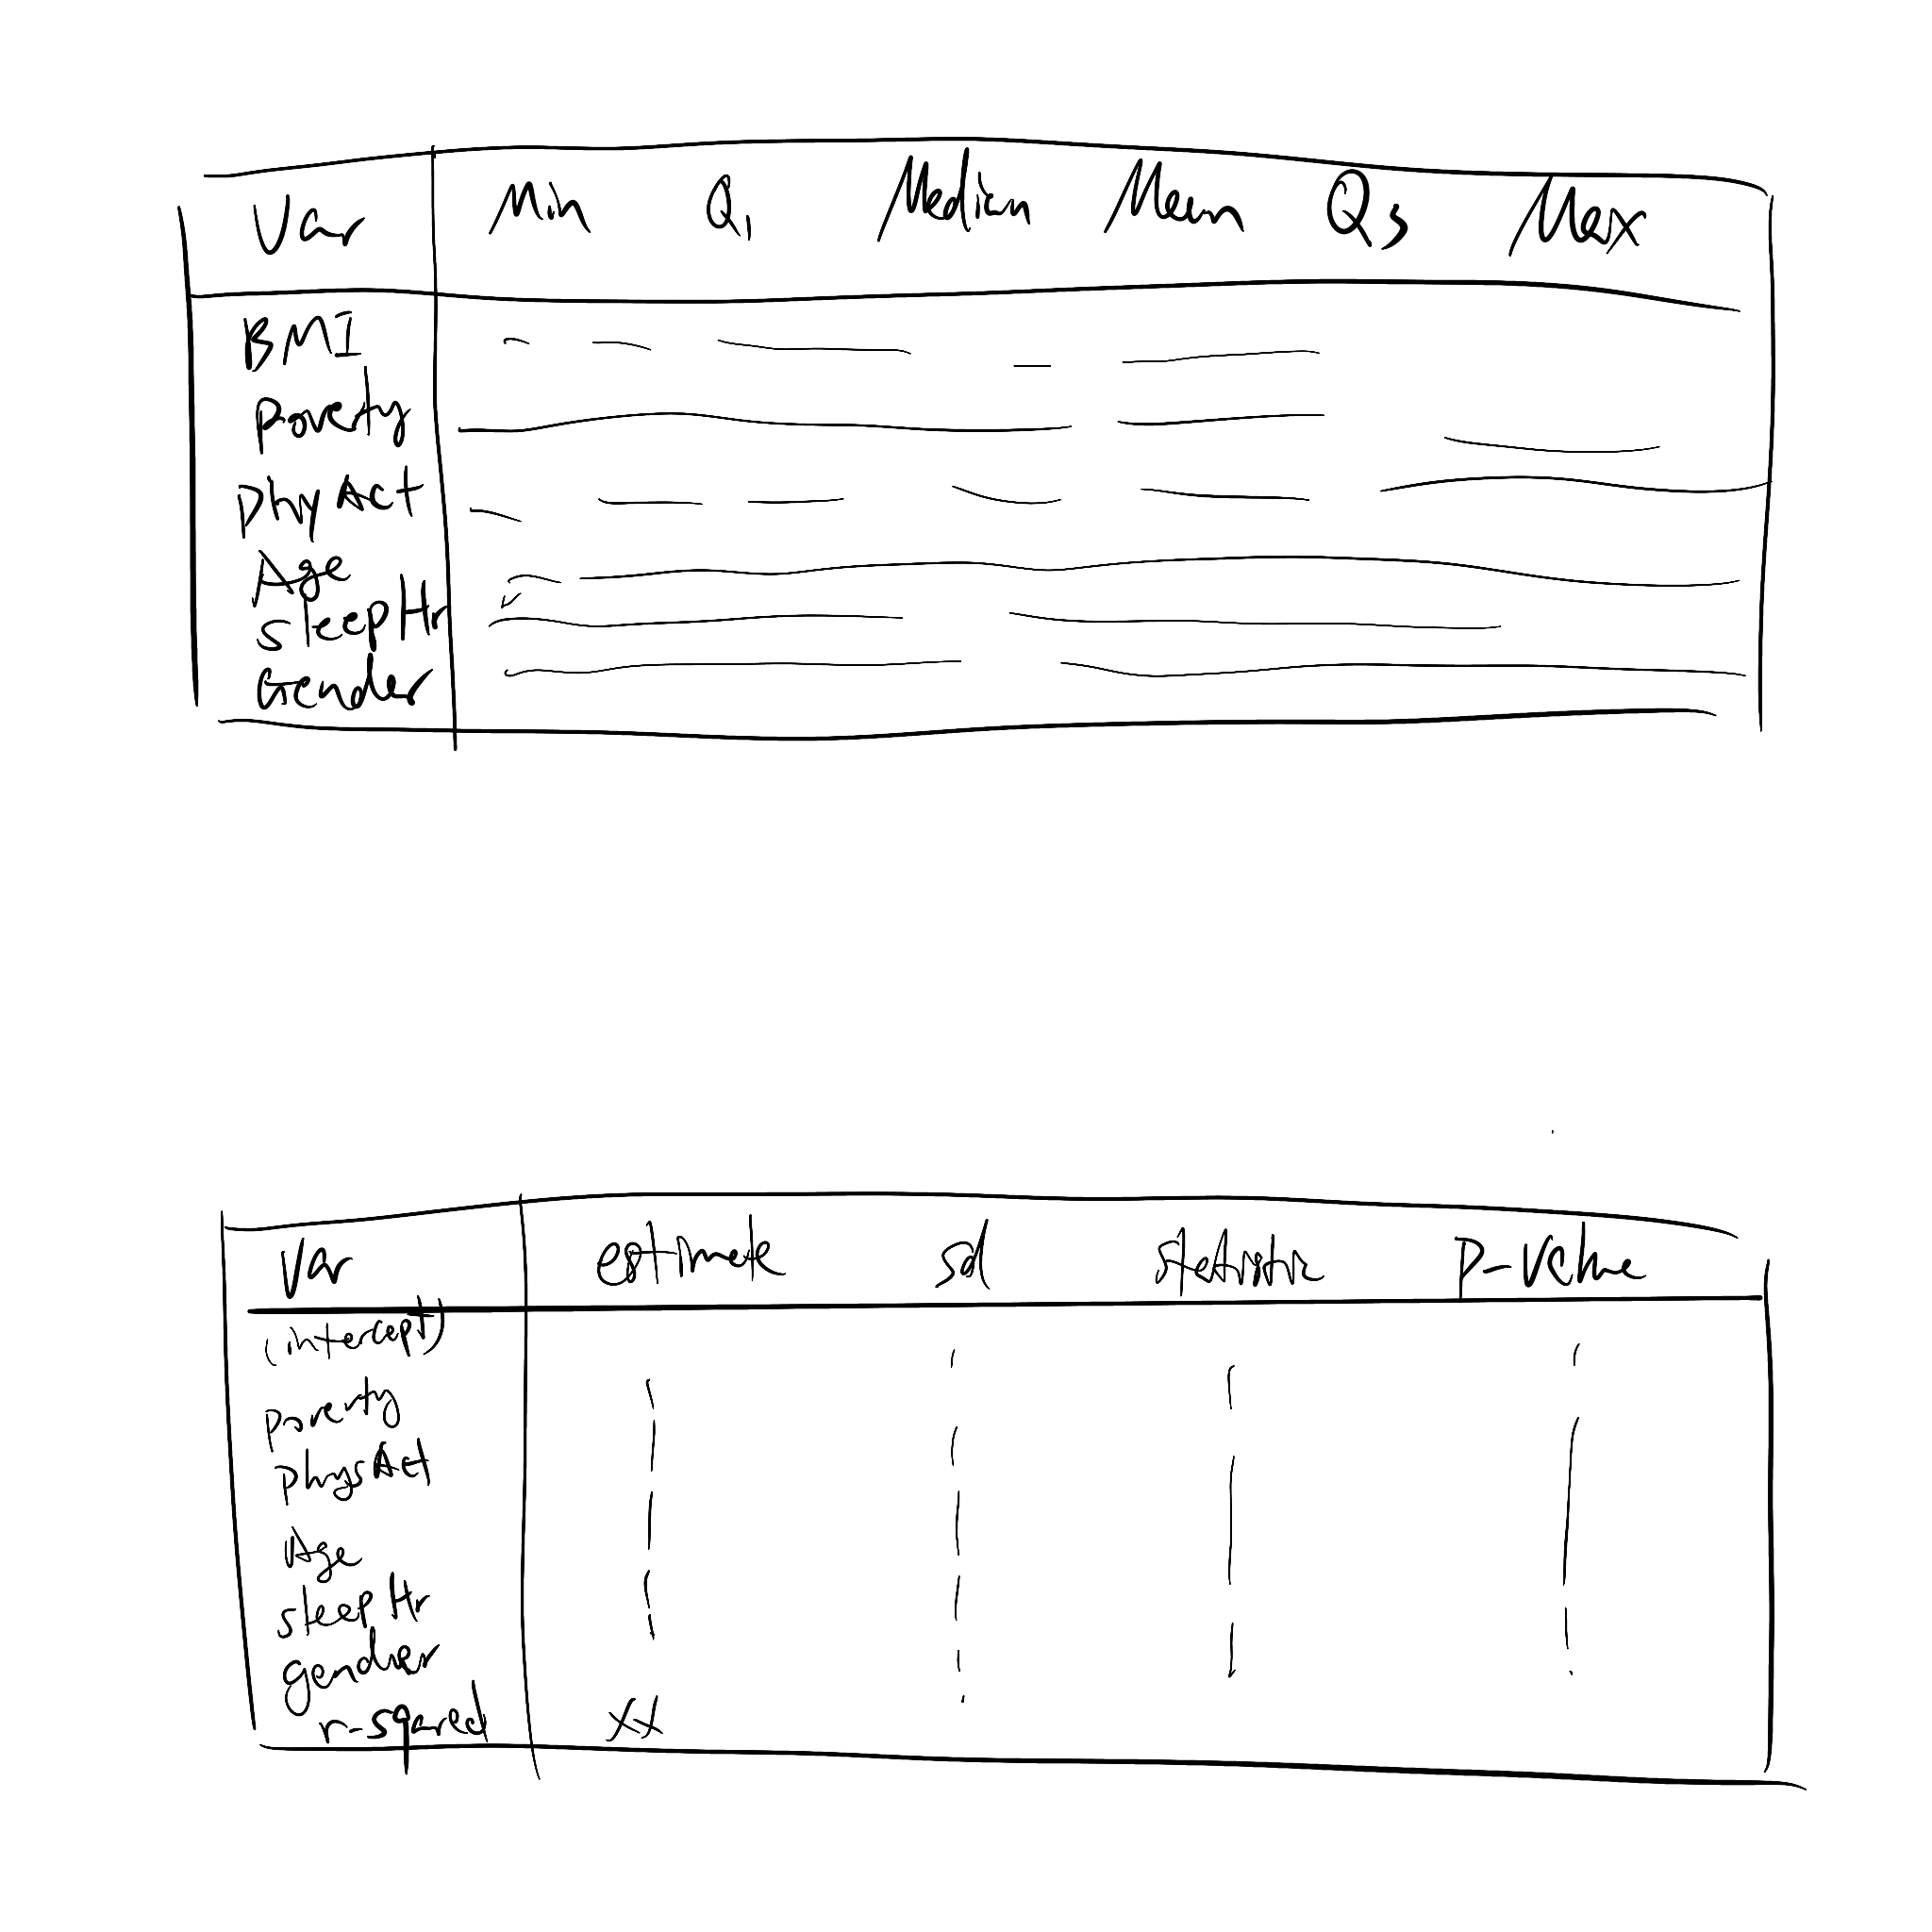 Var Min Q1 Median Mean Q3 Max
BMI
Poverty
PhyAct
Age
SleepHr
Gender
Var estimate sd statistic P-Value
(intercept)
Poverty
PhysAct
Age
SleepHr
gender
r-sqared
xx